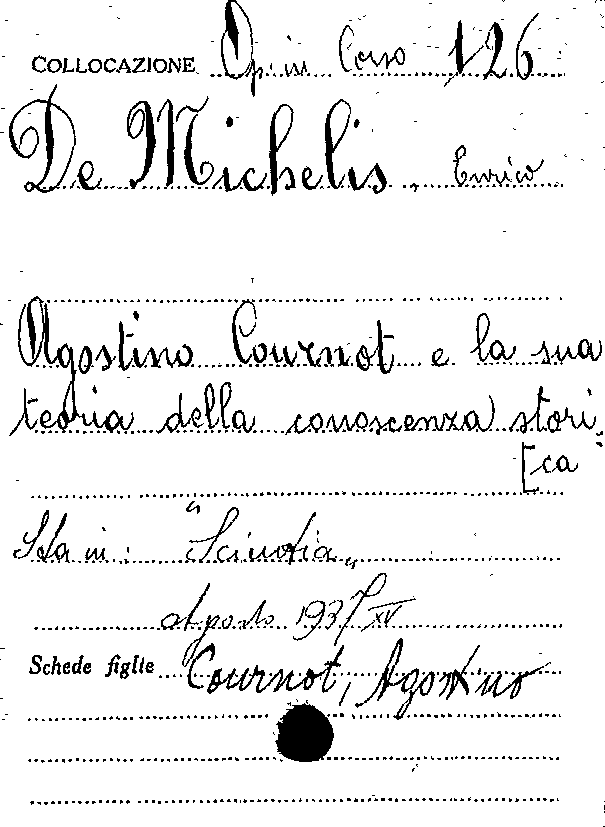 COLLOCAZIONE Op. in Corso 126
De Michelis, Enrico
Agostino Cournot e la sua
teoria della conoscenza stori=
[ca
Sta in: "Scientia„
Agosto 1937 XV
Schede figlie Cournot, Agostino